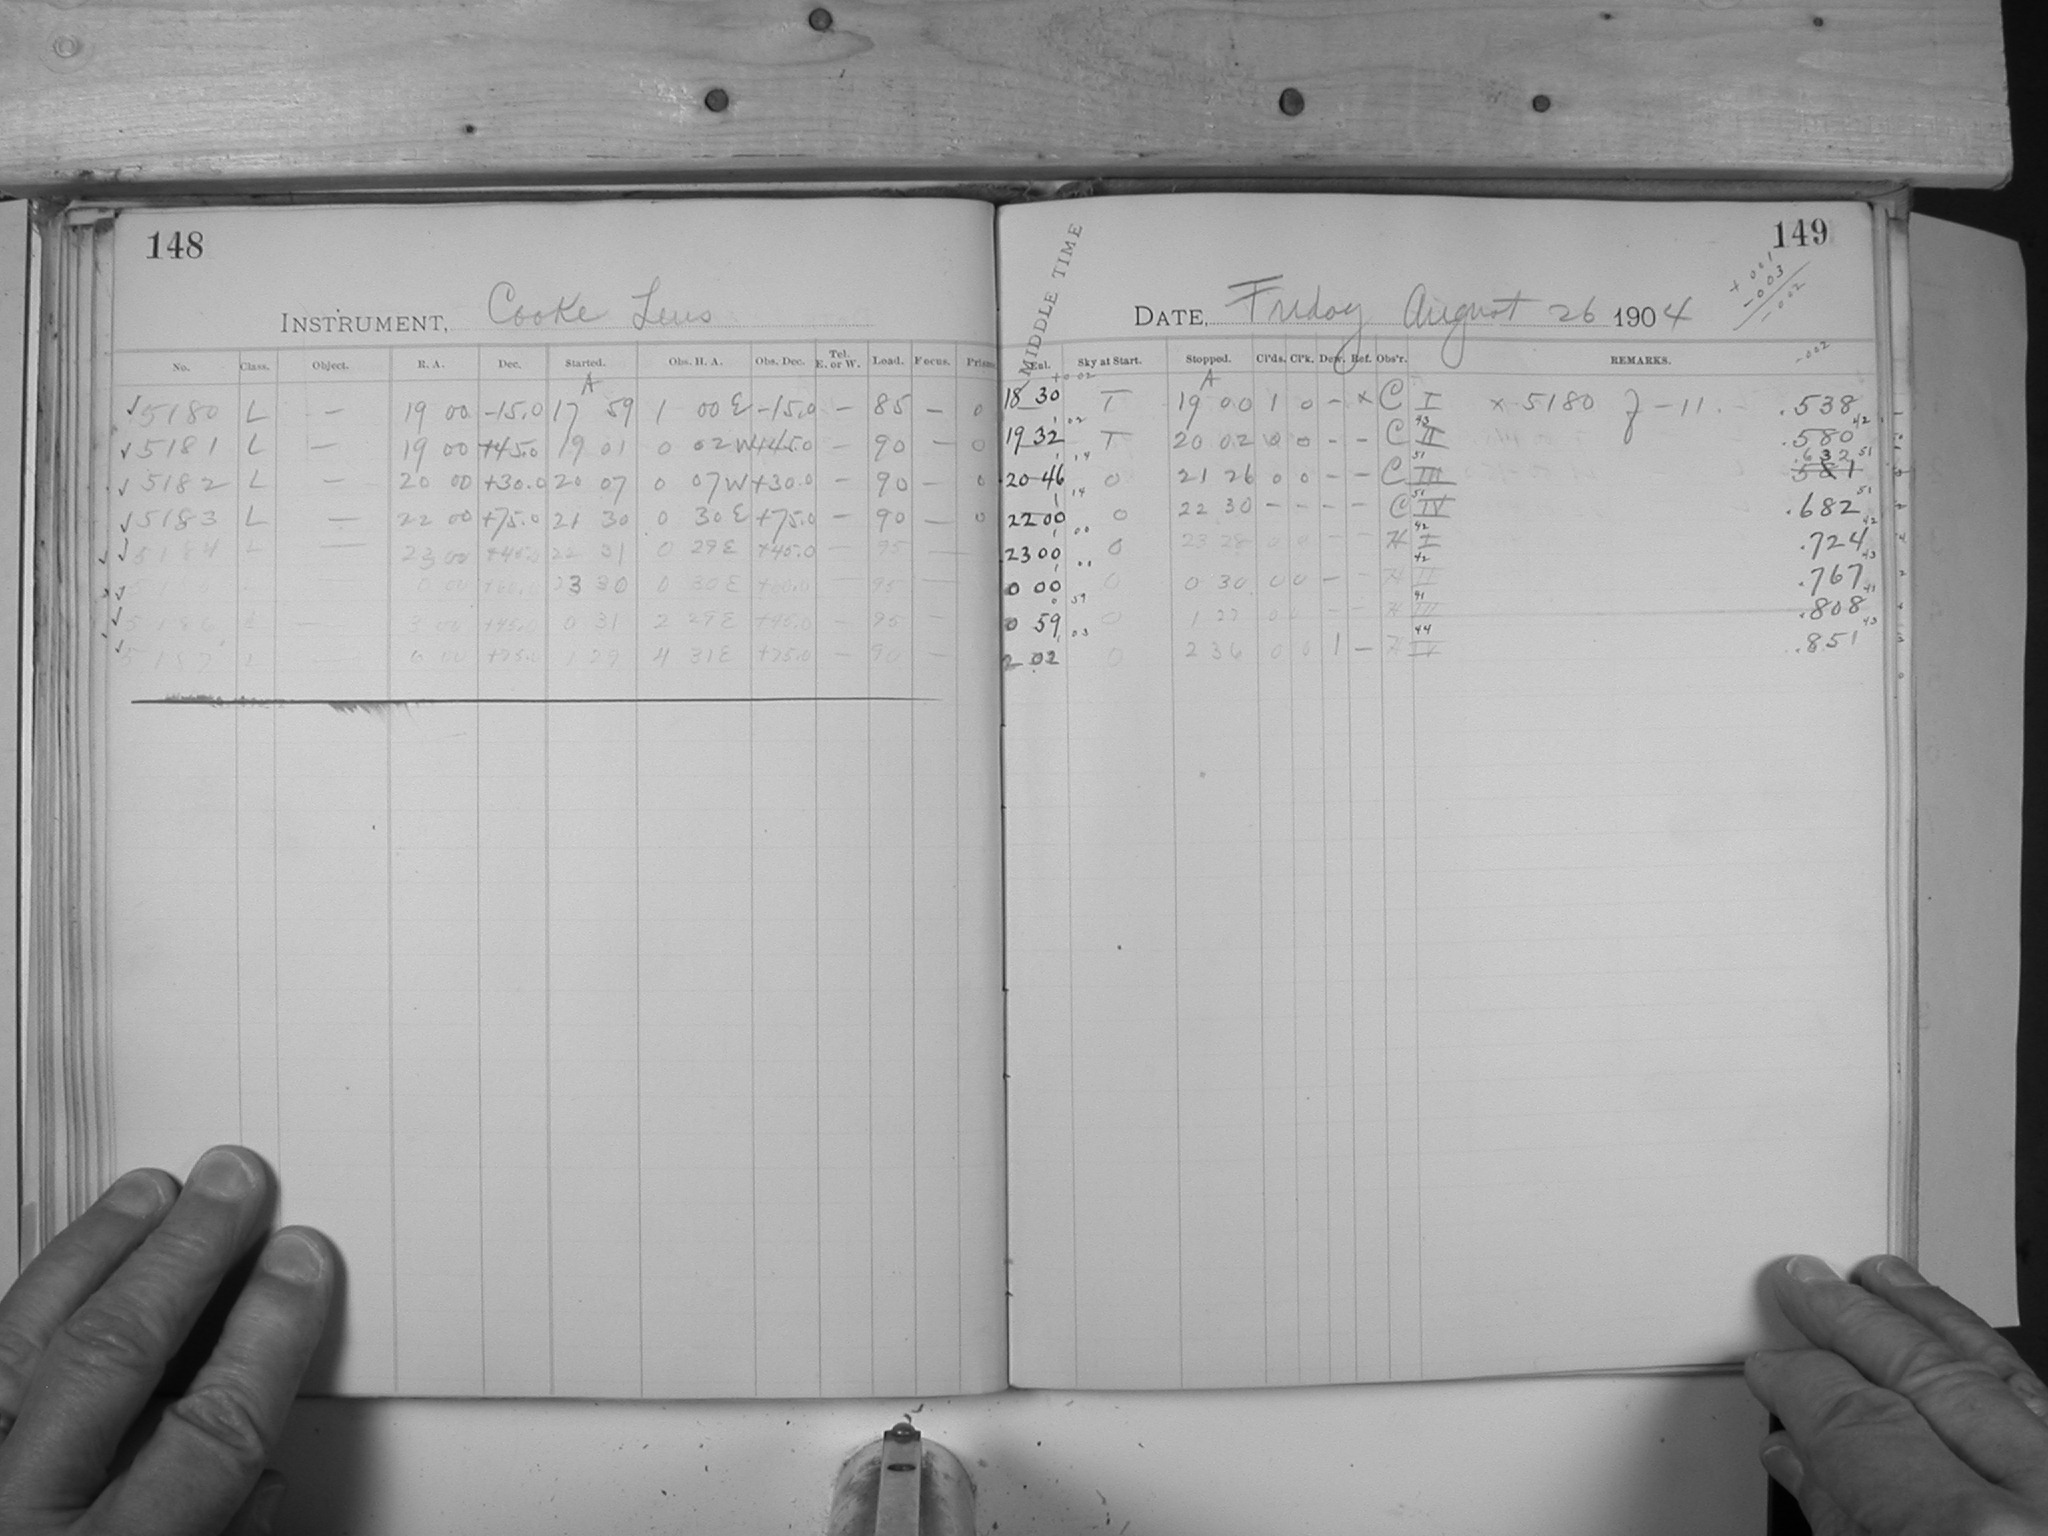 148
INSTRUMENT, Cooke Lens
No. Class. Object. R. A. Dec. Started. Obs. H. A. Obs. Dec. Tel. E. or W. Load. Focus. Prism
A
✓ 5180 L — 19 00 -15.0 17 59 1 00 E -15.0 — 85 — 0
✓ 5181 L — 19 00 +45.0 19 01 0 02 W +45.0 — 90 — 0
✓ 5182 L — 20 00 +30.0 20 07 0 07 W +30.0 — 90 — 0
✓ 5183 L — 22 00 +75.0 21 30 0 30 E +75.0 — 90 — 0
✓ 5184 L — 23 00 +45.0 22 31 0 29 E +45.0 — 95 —
✓ 0 00 +60.0 23 30 0 30 E +60.0 — 95 —
✓ 5186 L — 3 00 +45.0 0 31 2 29 E +45.0 — 95 —
✓ 5187 L 6 00 +75.0 1 29 4 31 E +75.0 — 90 —
149
+ .001
- .003
- .002
MIDDLE TIME
DATE, Friday August 26 1904
Exl. Sky at Start. Stopped. Cl'ds. Cl'k. Dew. Ref. Obs'r. REMARKS.
-.002
A
18 30 T 19 00 1 0 – × C I × 5180 J – 11. .538
19 32 T 20 02 0 0 – – C II .580
20 46 0 21 26 0 0 – – C III .632 581
22 00 0 22 30 – – – – C IV .682
23 00 0 23 28 0 0 – – H I .724
0 00 0 0 30 0 0 – – H II .767
0 59 0 1 27 0 0 – – H III .808
2 02 0 2 36 0 0 1 – H IV .851